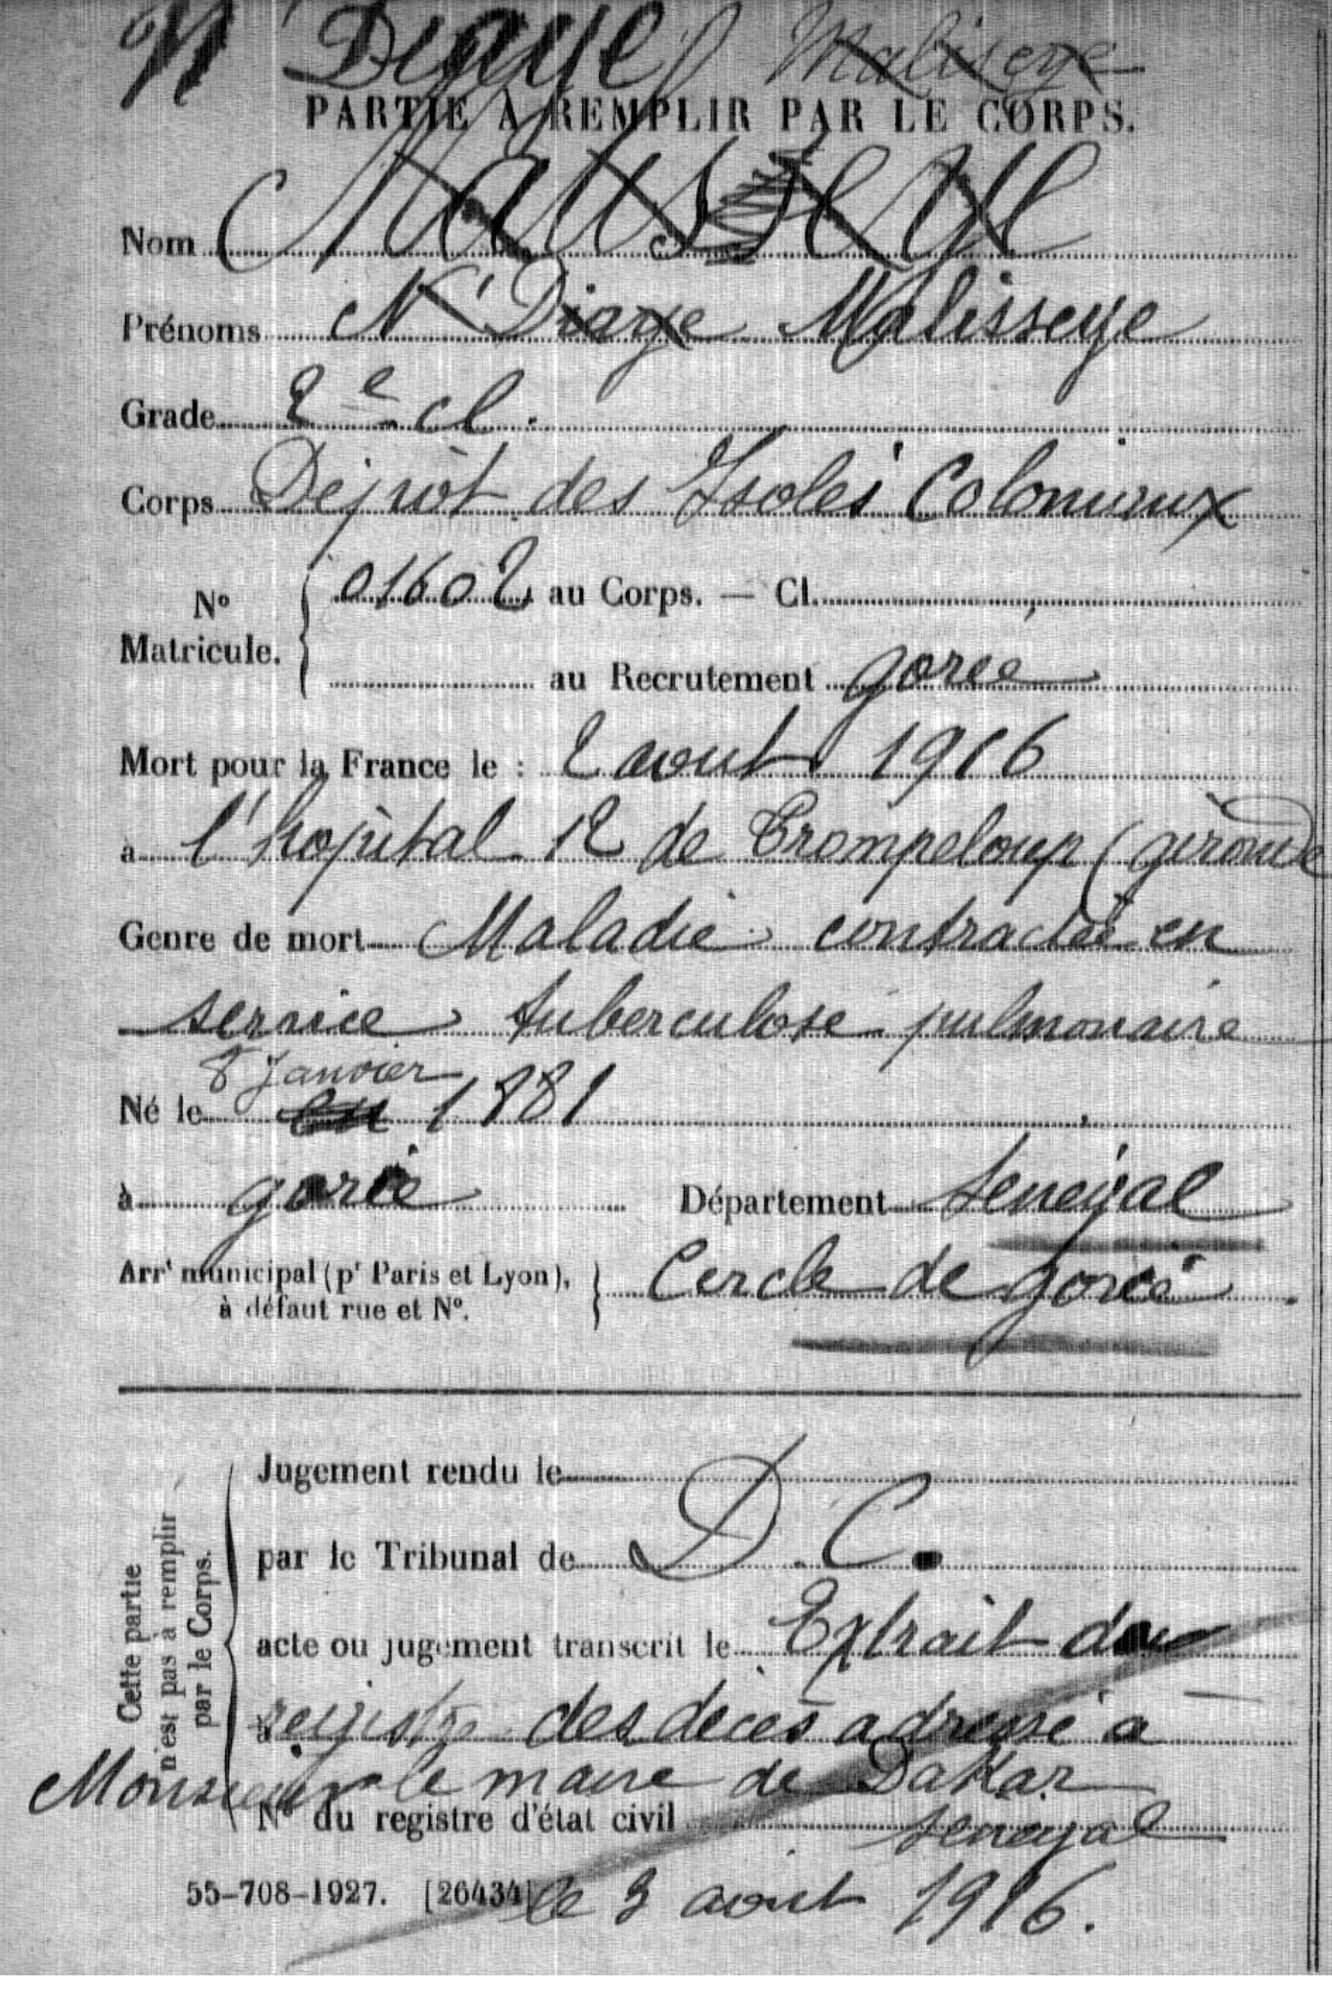 N'Diaye Maliseye
PARTIE À REMPLIR PAR LE CORPS.
Nom Maliseye
Prénoms N'Diaye Malisseye
Grade 2e cl.
Corps Dépôt des Isolés Coloniaux
No Matricule. 01602 au Corps. — Cl.
au Recrutement gorée
Mort pour la France le : 2 aout 1916
à l'hôpital 12 de Trompeloup (gironde
Genre de mort Maladie contractée en
service tuberculose pulmonaire
8 Janvier
Né le en 1881
à gorée Département Senegal
Arrt municipal (pr Paris et Lyon), à défaut rue et No. Cercle de gorée
Cette partie n'est pas à remplir par le Corps.
Jugement rendu le
par le Tribunal de D. C.
acte ou jugement transcrit le Extrait du
registre des décès adressé à
Monsieur le maire de Dakar
No du registre d'état civil senegal
55-708-1927. [26434] le 3 août 1916.